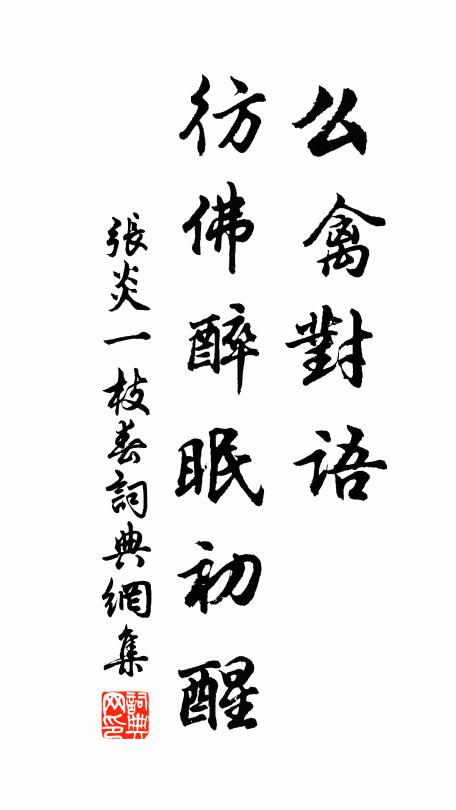 么禽對語
彷佛醉眠初醒
張炎一枝春詞典網集
詞典网印